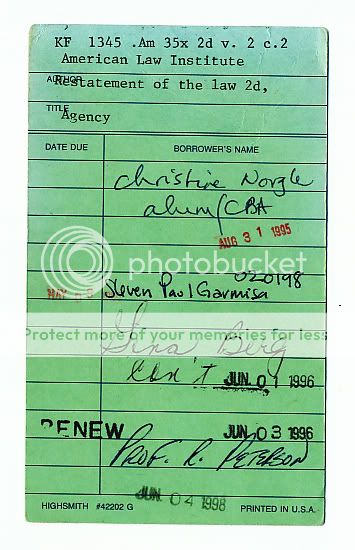 KF 1345 .Am 35x 2d v. 2 c.2
American Law Institute
AUTHOR
Restatement of the law 2d,
TITLE
Agency
DATE DUE BORROWER'S NAME
Christine Norgle
alum/CBA
AUG 31 1995
photobucket
020198
MAY Steven Paul Garmisa
Protect more of your memories for less!
Gina Berg
Con't JUN 01 1996
RENEW JUN 03 1996
PROF. R. PETERSON
JUN 04 1998
HIGHSMITH #42202 G PRINTED IN U.S.A.